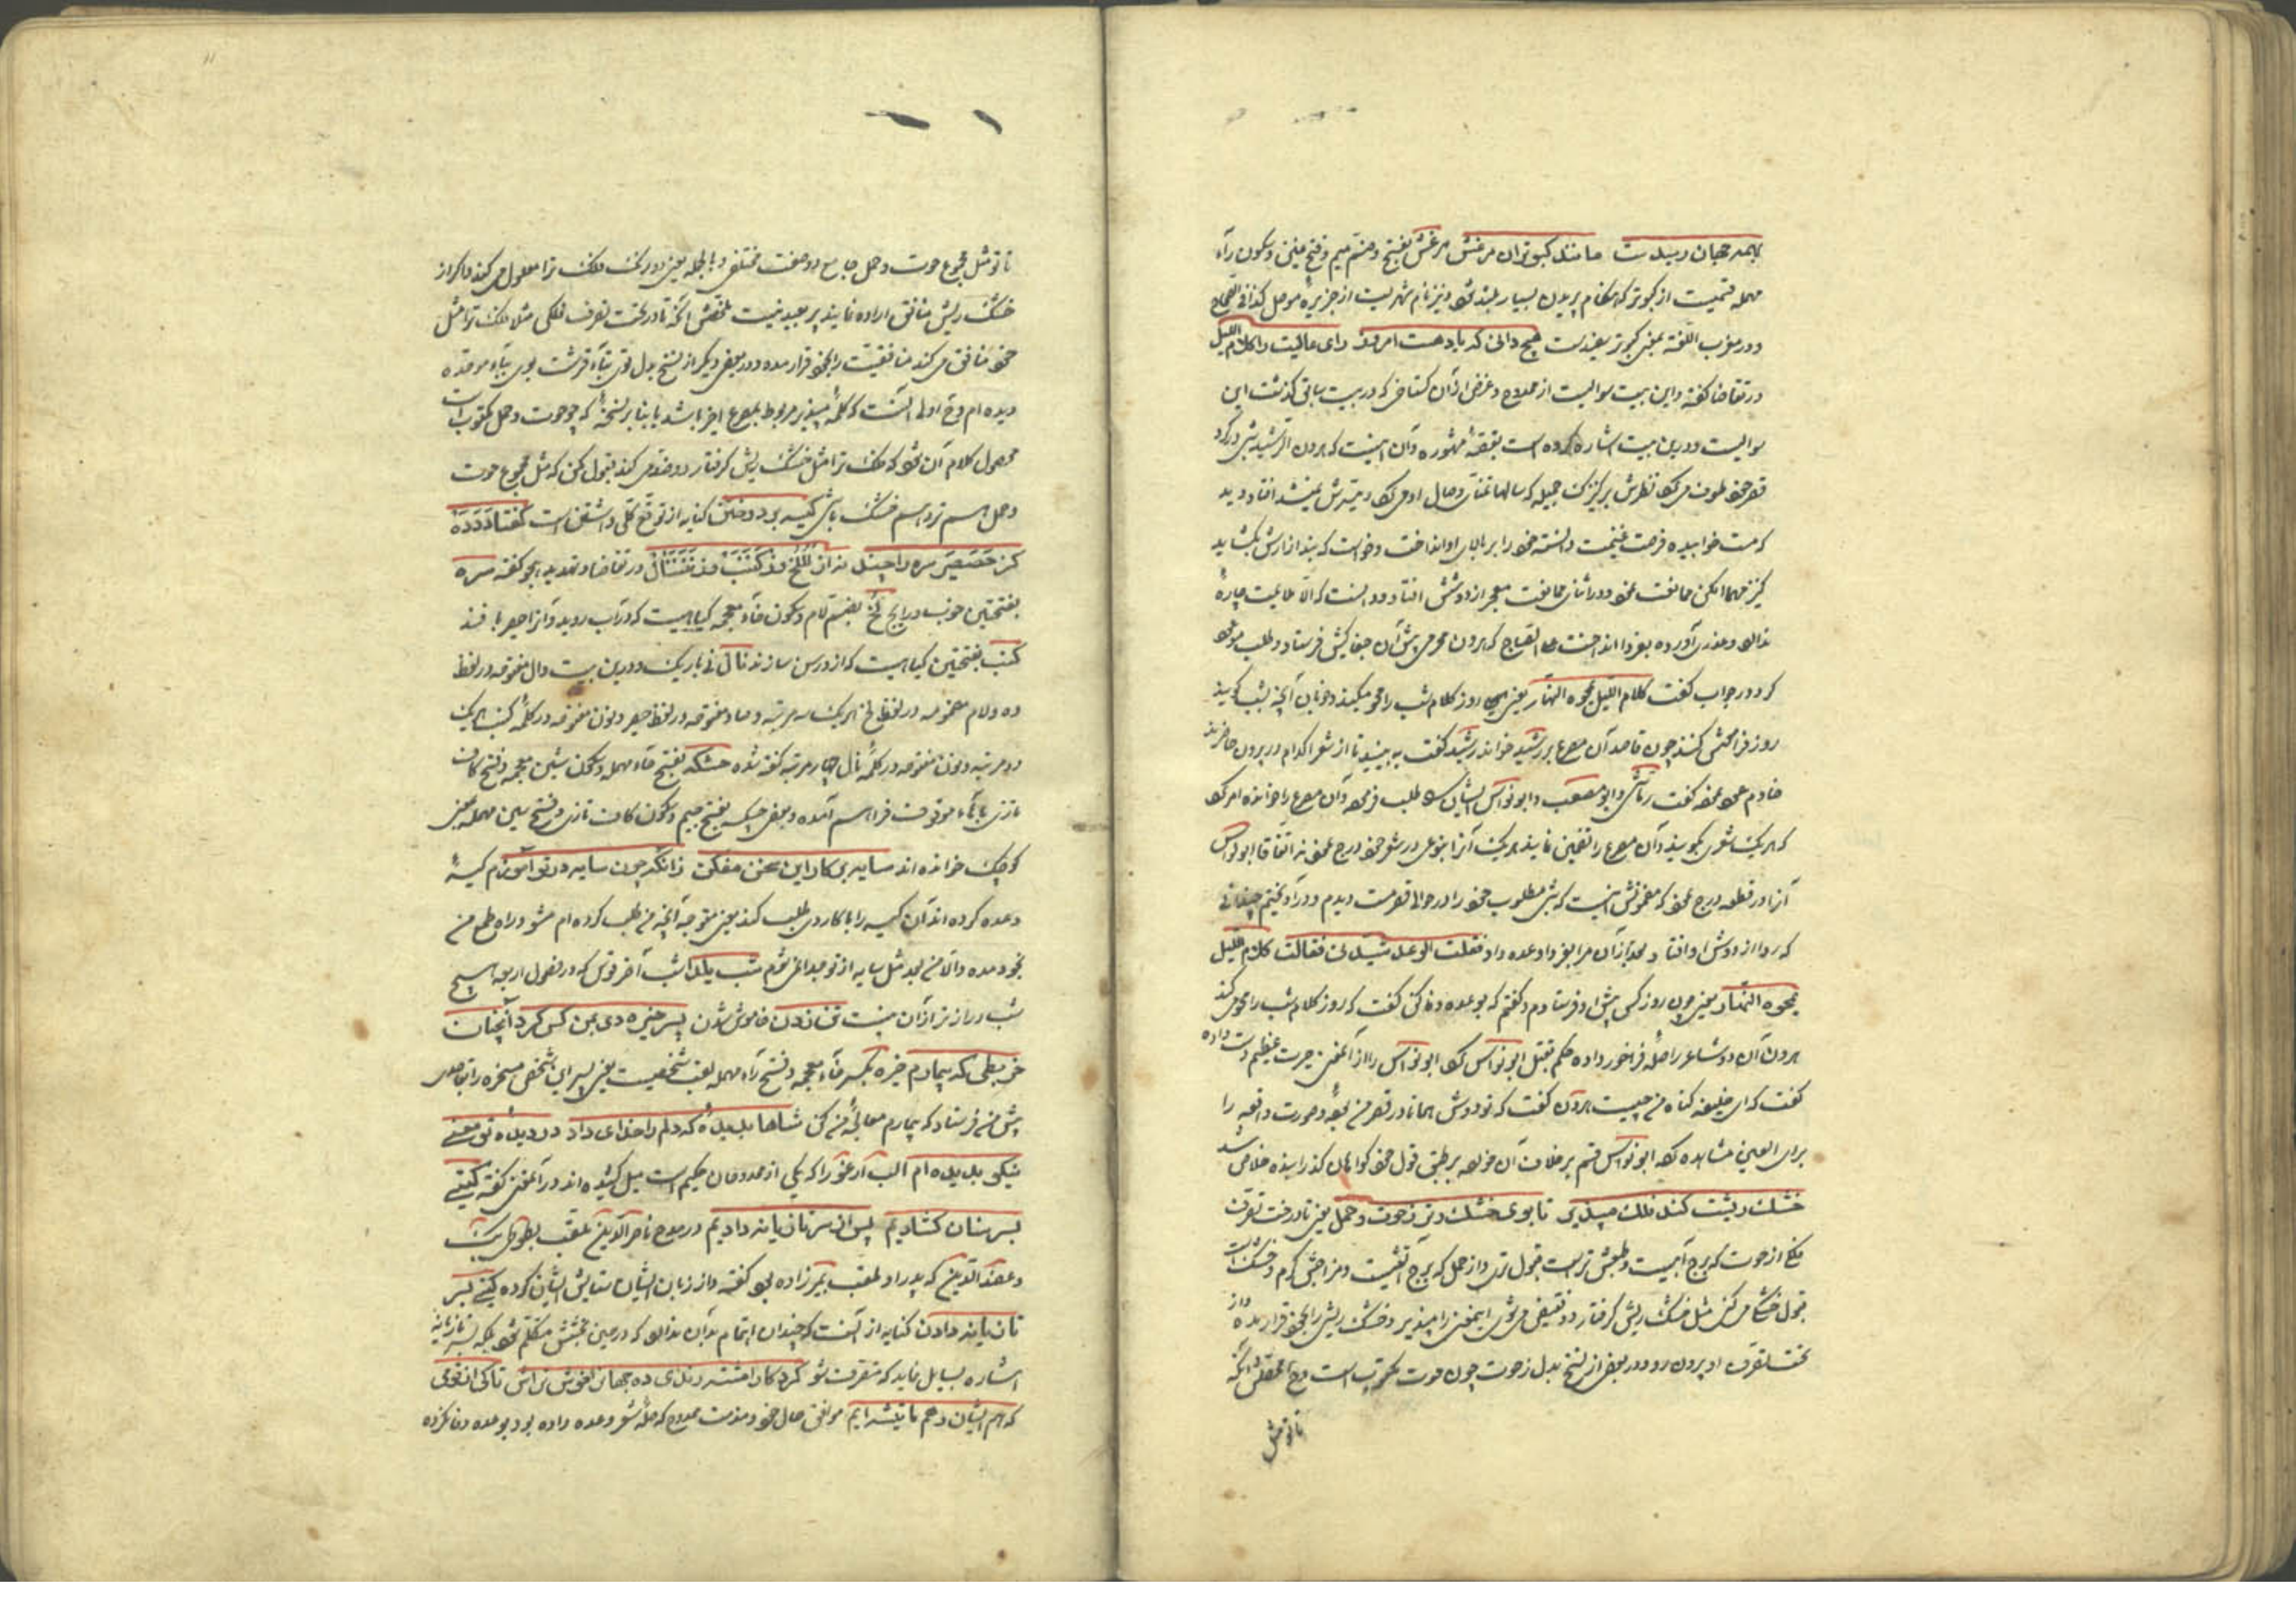 بهمه جهان رسیدست مانند کبوتران مرعش مرعش بفتح و ضم میم و فتح عین و سکون رآء
مهمله قسمیست از کبوتر که هنگام پریدن بسیار بلند شود و نیز نام شهریست از جزیرهٔ موصل کذا فی الصحاح
و در معرب اللغة بمعنی کبوتر سفیدست هیچ دانی که یاد هست امروز رای عالیت را کلام اللیل
در تقاضا گفته و این بیت سوالیست از ممدوح و غرض ازان گستاخی که در بیت سابق گذشت این
سوالیست و درین بیت اشاره کرده است بقصهٔ مشهوره و آن اینست که هرون الرشید شبی در گرد
قصر خود طوف می کرد نظرش بر کنیزک جمیله که سالها تمنای وصال او می کرد و میسرش نمیشد افتاد و دید
که مست خوابیده فرصت غنیمت دانسته خود را بر بالای او انداخت و خواست که بند ازارش بکشاید
کنیز مهما امکن ممانعت نمود و در اثنای ممانعت معجر از دوشش افتاد و دانست که الا ملایمت چارهٔ
ندارد و عذری آورده بفردا انداخت علی الصباح که هرون محرمی پیش آن جفاکیش فرستاد و طلب موعود
کرد در جواب گفت کلام اللیل یمحوه النهار یعنی روز کلام شب را محو میکند و خوبان آنچه بشب گویند
روز فرامشی کنند چون قاصد آن مصرع بر رشید خواند رشید گفت به بینید تا از شعرا کدام در بیرون حاضرند
خادم عرض نمود گفت رقاشی و ابو مصعب و ابو نواس ایشان را طلب فرمود و آن مصرع را خوانده امر کرد
که هر یک شعری بگویند و آن مصرع را تضمین نمایند هر یک آنرا بنوعی در شعر خود درج نمودند اتفاقا ابو نواس
آنرا در قطعه درج نمود که مضمونش اینست که شبی مطلوب خود را در حوالی قصر مست دیدم و در او آویختم چندانی
که ردا از دوش او افتاد و بعد ازان مرا بفردا وعده داد فقلت الوعد سیدتی فقالت کلام اللیل
یمحوه النهار یعنی چون روز کسی پیش او فرستادم و گفتم که بوعده وفا کن گفت که روز کلام شب را محو می کند
هرون آن دو شاعر را صلهٔ فراخور داده حکم بقتل ابو نواس کرد ابو نواس را از آنمعنی حیرت عظیم دست داده
گفت که ای خلیفه گناه من چیست هرون گفت که تو دوش همانا در قصر من بودهٔ و صورت واقعه را
برای العین مشاهده کرده ابو نواس قسم بر خلاف آن خورد بر طبق قول خود گواهان گذرانیده خلاص شد
خشک ریشت کند فلک مپذیر تا بوی خشک و تر زحوت و حمل یعنی تا در تحت تصرف
فلکی از حوت که برج آبیست و طبعش ترست قبول تری و از حمل که برج آتشیست و مزاجش گرم و خشک است
قبول خشکی می کنی مثل خشک ریش گرفتار دو نقیضی می شوی اینمعنی را مپذیر و خشک ریش را بخود قرار مده و از
تحت تصرف او بیرون رو و در بعض از نسخ بدل زحوت چون حوت مکتوب است و آنکه
تا تو مثل
تا تو مثل مجموع حوت و حمل جامع دو صفت مختلفی و بالجمله یعنی دور فلک ترا معلول می کند و اگر از
خشک ریش منافق اراده نمایند پر بعید نیست ملخصش آنکه تا در تحت تصرف فلکی مثلا فلک ترا مثل
خود منافق می کند منافقیت را بخود قرار مده و در بعضی دیگر از نسخ بدل توی بتاء قرشت بوی بباء موحده
دیده ام و اولی آنست که کلمهٔ مپذیر مربوط بمصرع اخیر باشد یا بنا بر نسخهٔ که چو حوت و حمل مکتوب است
محصول کلام آن شود که فلک ترا مثل خشک ریش گرفتار دو ضد می کند قبول مکن که مثل مجموع حوت
و حمل هم تر و هم خشک باشی کیسه بر دوختن کنایه از توقع کلی داشتن است گفتا دددَه
کز حصیر سره داچند نداز للخ کنب نند ننال در تقاضا و تهدید بهجو گفته سره
بفتحتین خوب و رایج لخ بضم لام و سکون خآء معجمه گیاهیست که در آب روید و آنرا حصیر بافند
کنب بفتحتین گیاهیست که از و رسن سازند نال نی باریک و درین بیت دال مفتوحه در لفظ
ده و لام مضمومه در لفظ لخ هر یک سه مرتبه و صاد مفتوحه در لفظ حصیر و نون مفتوحه در کلمهٔ کنب هر یک
دو مرتبه و نون مفتوحه در کلمهٔ نال چهار مرتبه گفته شده خشکه بفتح خآء مهمله و سکون شین معجمه و فتح کاف
تازی باآء موقوف فراهم آمده و بعضی جکسه بفتح جیم و سکون کاف تازی و فتح سین مهمله بمعنی
کوچک خوانده اند سایه بی کار این سخن مفکن زانکه چون سایه در تو آموزم کیسهٔ
وعده کرده اند آن کیسه را با کاروی طلب کند یعنی متوجه آنچه من طلب کرده ام مشو و راه طمع من
بخود مده والا من بعد مثل سایه از تو جدا نمی شوم شب یلدا شب آخر قوس که در فصول اربعه هیچ
شب درازتر از آن نیست تن زدن خاموش شدن پسر خیره دی بمن کس کرد آنچنان
خر بطی که بیمارم خیره بکسر خآء معجمه و فتح رآء مهمله لقب شخصیست یعنی پسر این شخص مسخره را بتقاضای
پیش من فرستاد که بیمارم معالجهٔ من کن شاها بدیدهٔ که دلم را خدای داد در دیده تو معنی
نیکو بدیده ام الب ارغو را که یکی از ممدوحان حکیم است میل کشیده اند در آنمعنی گفته گیتی
بسر سنان کشادیم پس از سر تازیانه دادیم در مدح ناصر الدین ملقب بطوطی بیک
و عضد الدین که پدر او ملقب بمیرزاده بود گفته و از زبان ایشان ستایش ایشان کرده گیتی بسر
تازیانه دادن کنایه از آنست که چندان اهتمام بدان ندارد که در حین بخشش متکلم شود بلکه بسر تازیانه
اشاره بسایل نماید که متصرف شو گرد کار امتش رندی ده جهان افروش تراش تاکی از قومی
که هم ایشان و هم ما تیشه ایم موافق حال خود و مذمت ممدوح که صلهٔ شعر وعده داده بود و بوعده وفا نکرده